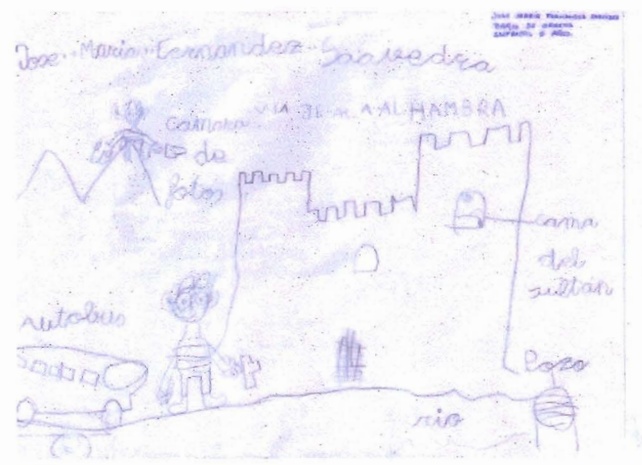 JOSE MARIA FERNANDEZ
Jose Maria Fernandez Saavedra
VIAJE A LA ALHAMBRA
camara
de
fotos
cama
del
sultán
Autobus
Pozo
rio